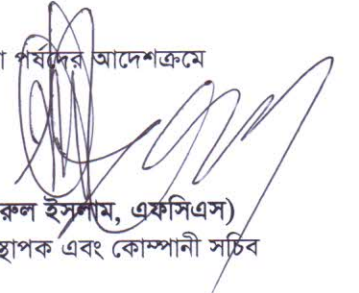 পর্ষদের আদেশক্রমে
ইসলাম, এফসিএস)
এবং কোম্পানী সচিব